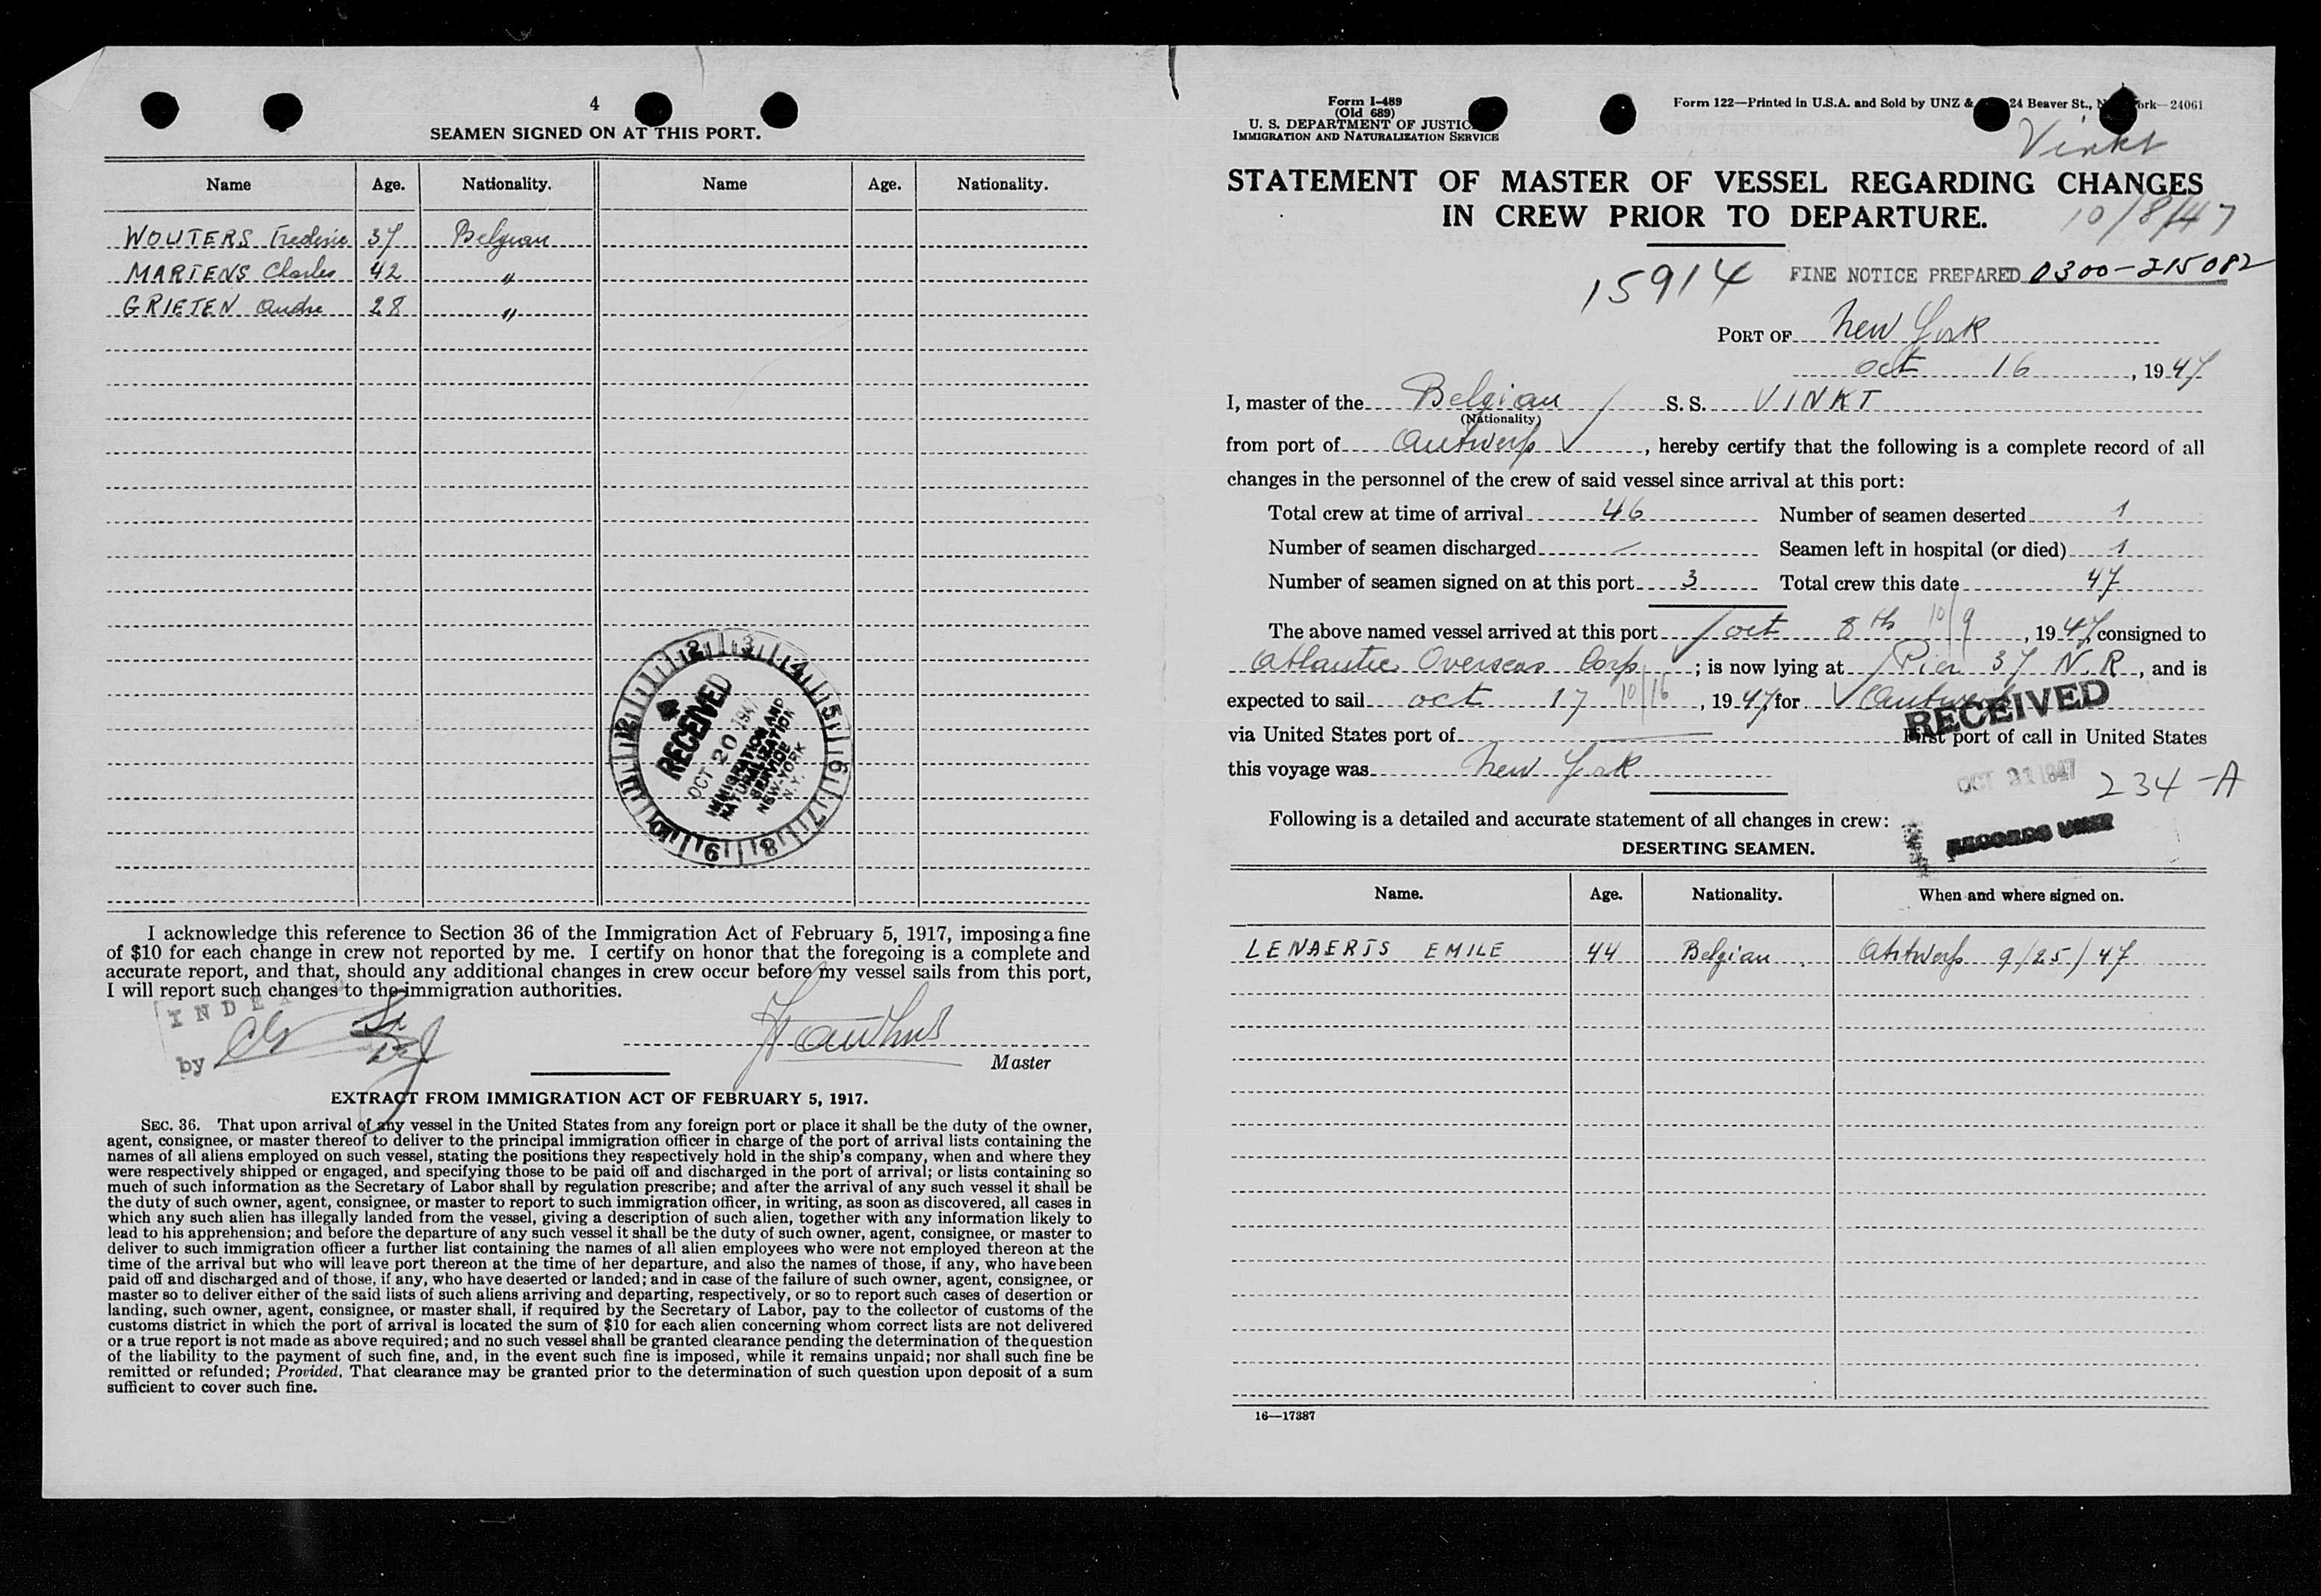 4
SEAMEN SIGNED ON AT THIS PORT.
Name Age. Nationality. Name Age. Nationality.
WOUTERS Frederic 37 Belgian
MARTENS Charles 42 "
GRIETEN Andre 28 "
RECEIVED
OCT 20 1947
IMMIGRATION AND
NATURALIZATION
SERVICE
NEW-YORK
N.Y.
I acknowledge this reference to Section 36 of the Immigration Act of February 5, 1917, imposing a fine
of $10 for each change in crew not reported by me. I certify on honor that the foregoing is a complete and
accurate report, and that, should any additional changes in crew occur before my vessel sails from this port,
I will report such changes to the immigration authorities.
INDEXED
by
Master
EXTRACT FROM IMMIGRATION ACT OF FEBRUARY 5, 1917.
SEC. 36. That upon arrival of any vessel in the United States from any foreign port or place it shall be the duty of the owner,
agent, consignee, or master thereof to deliver to the principal immigration officer in charge of the port of arrival lists containing the
names of all aliens employed on such vessel, stating the positions they respectively hold in the ship's company, when and where they
were respectively shipped or engaged, and specifying those to be paid off and discharged in the port of arrival; or lists containing so
much of such information as the Secretary of Labor shall by regulation prescribe; and after the arrival of any such vessel it shall be
the duty of such owner, agent, consignee, or master to report to such immigration officer, in writing, as soon as discovered, all cases in
which any such alien has illegally landed from the vessel, giving a description of such alien, together with any information likely to
lead to his apprehension; and before the departure of any such vessel it shall be the duty of such owner, agent, consignee, or master to
deliver to such immigration officer a further list containing the names of all alien employees who were not employed thereon at the
time of the arrival but who will leave port thereon at the time of her departure, and also the names of those, if any, who have been
paid off and discharged and of those, if any, who have deserted or landed; and in case of the failure of such owner, agent, consignee, or
master so to deliver either of the said lists of such aliens arriving and departing, respectively, or so to report such cases of desertion or
landing, such owner, agent, consignee, or master shall, if required by the Secretary of Labor, pay to the collector of customs of the
customs district in which the port of arrival is located the sum of $10 for each alien concerning whom correct lists are not delivered
or a true report is not made as above required; and no such vessel shall be granted clearance pending the determination of the question
of the liability to the payment of such fine, and, in the event such fine is imposed, while it remains unpaid; nor shall such fine be
remitted or refunded; Provided, That clearance may be granted prior to the determination of such question upon deposit of a sum
sufficient to cover such fine.
Form I-489
(Old 689)
U. S. DEPARTMENT OF JUSTIC
IMMIGRATION AND NATURALIZATION SERVICE
Form 122—Printed in U.S.A. and Sold by UNZ & 24 Beaver St., N ork—24061
Vinkt
STATEMENT OF MASTER OF VESSEL REGARDING CHANGES
IN CREW PRIOR TO DEPARTURE.
10/8/47
15914 FINE NOTICE PREPARED 0300-215082
PORT OF New York
Oct 16, 1947
I, master of the Belgian S. S. VINKT
(Nationality)
from port of Antwerp, hereby certify that the following is a complete record of all
changes in the personnel of the crew of said vessel since arrival at this port:
Total crew at time of arrival 46 Number of seamen deserted 1
Number of seamen discharged — Seamen left in hospital (or died) 1
Number of seamen signed on at this port 3 Total crew this date 47
The above named vessel arrived at this port Oct 8th 10/9, 1947, consigned to
Atlantic Overseas Corp; is now lying at Pier 37 N.R, and is
expected to sail Oct 17 10/16, 1947, for Antwerp
via United States port of First port of call in United States
this voyage was New York
RECEIVED
OCT 31 1947
234-A
RECORDS UNIT
Following is a detailed and accurate statement of all changes in crew:
DESERTING SEAMEN.
Name. Age. Nationality. When and where signed on.
LENAERTS EMILE 44 Belgian Antwerp 9/25/47
16—17387